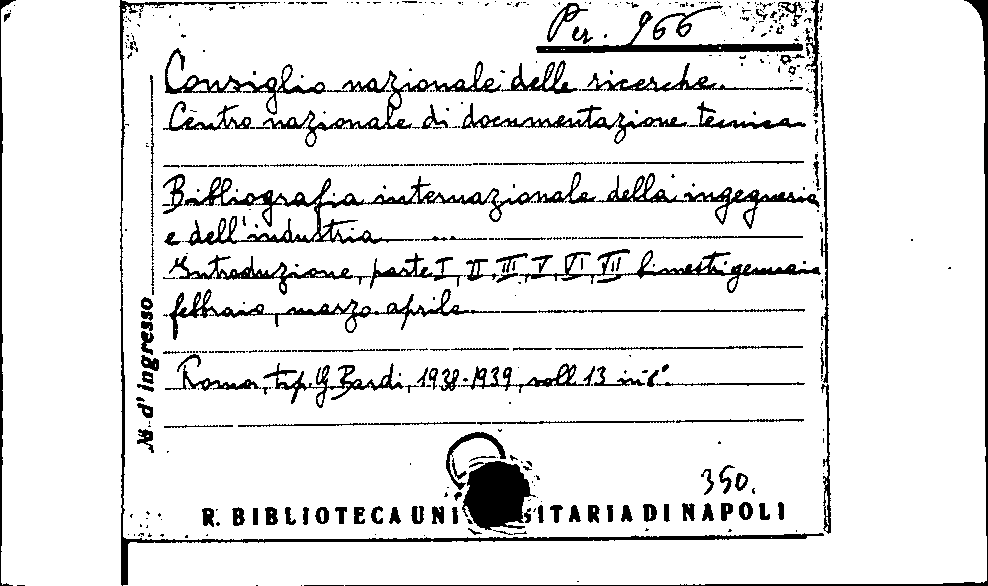 Per. 966
Consiglio nazionale delle ricerche.
Centro nazionale di documentazione tecnica
Bibliografia internazionale della ingegneria
e dell'industria ...
Introduzione, parte I, II, III, V, VI, VII bimestri gennaio
febbraio, marzo aprile
Roma, tip. G. Bardi, 1938-1939, voll 13 in 8°.
N. d'ingresso
350.
R. BIBLIOTECA UNI SITARIA DI NAPOLI